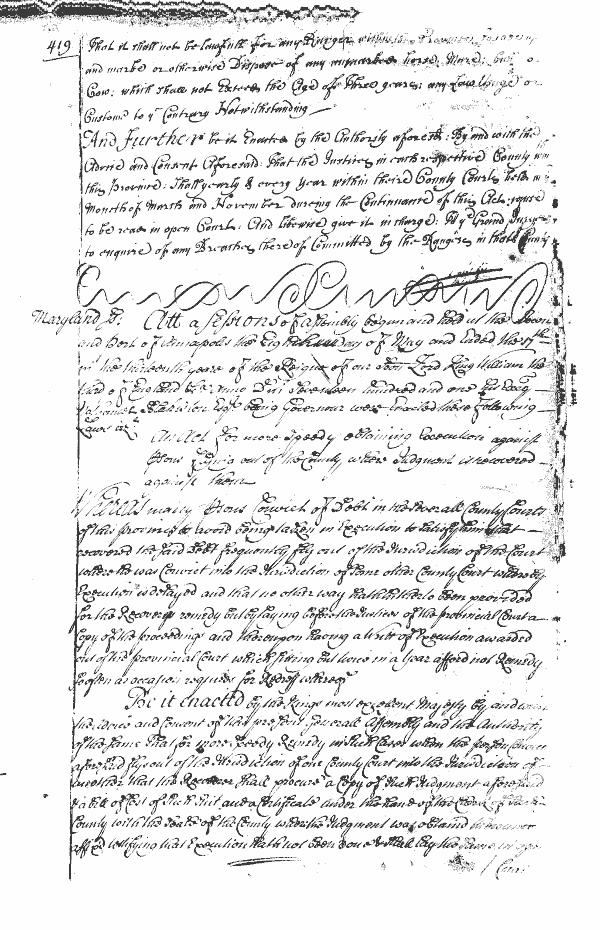 419
That it shall not be lawfull for any Ranger within this Province
and marke or otherwise Dispose of any unmarked horse, Mare;
Cow; which shall not Exceed the Age of Three yeares; any Law Usage or
Custome to ye Contrary Notwithstanding
And further be it Enacted by the Authority aforesd: By and with the
Advice and Consent Aforesaid: That the Justices in each respective County
this Province: Shall yearly & every year within theire County Courts held
Moneth of March and November dureing the Continuance of this Act; cause
to be read in open Court: And likewise give it in charge: to ye Grand
to enquire of any Breaches thereof Committed by the Rangers in that
Maryland ss: Att a Sessions of assembly begun and held at the Town
and Port of Annapolis the Eighth day of May and Ended the 17th
in the thirteenth yeare of the Reigne of our Lord King William the
third of England &c Anno Dni Seventeen hundred and one
Blakiston Esqr being Governour were Enacted these following
Laws viz
An Act for more Speedy obtaining Execution against
those flying out of the County where Judgment is recovered
against them
Whereas many those Convict of Debt in the severall County Courts
of this Province to avoid being taken in Execution to satisfy him that
recovered the said Debt frequently fly out of the Jurisdiction of the Court
where he was Convict into the Jurisdiction of some other County Court whereby
Execution is delayed and that no other way hath hitherto been provided
for the Recoverys remedy but by laying before the Justices of the provincial Court a
Copy of the proceedings and thereupon having a Writt of Execution awarded
out of the provincial Court which sitting but twice in a Year afford not Remedy
so often as occasion requires for Redress whereof
Be it enacted by the Kings most excellent Majesty by and with
the advice and consent of this present Generall Assembly and the Authority
of the same That for more speedy Remedy in such Cases when the person Convict
aforesaid flys out of the Jurisdiction of one County Court into the Jurisdiction of
another that the Recoverer shall procure a Copy of such Judgment aforesaid
of Cost of such Suit and a Certificate under the hand of the Clerk of such
County with the seale of the County where the Judgment was obtained
affixed testifying that Execution hath not been done & shall lay the same in open